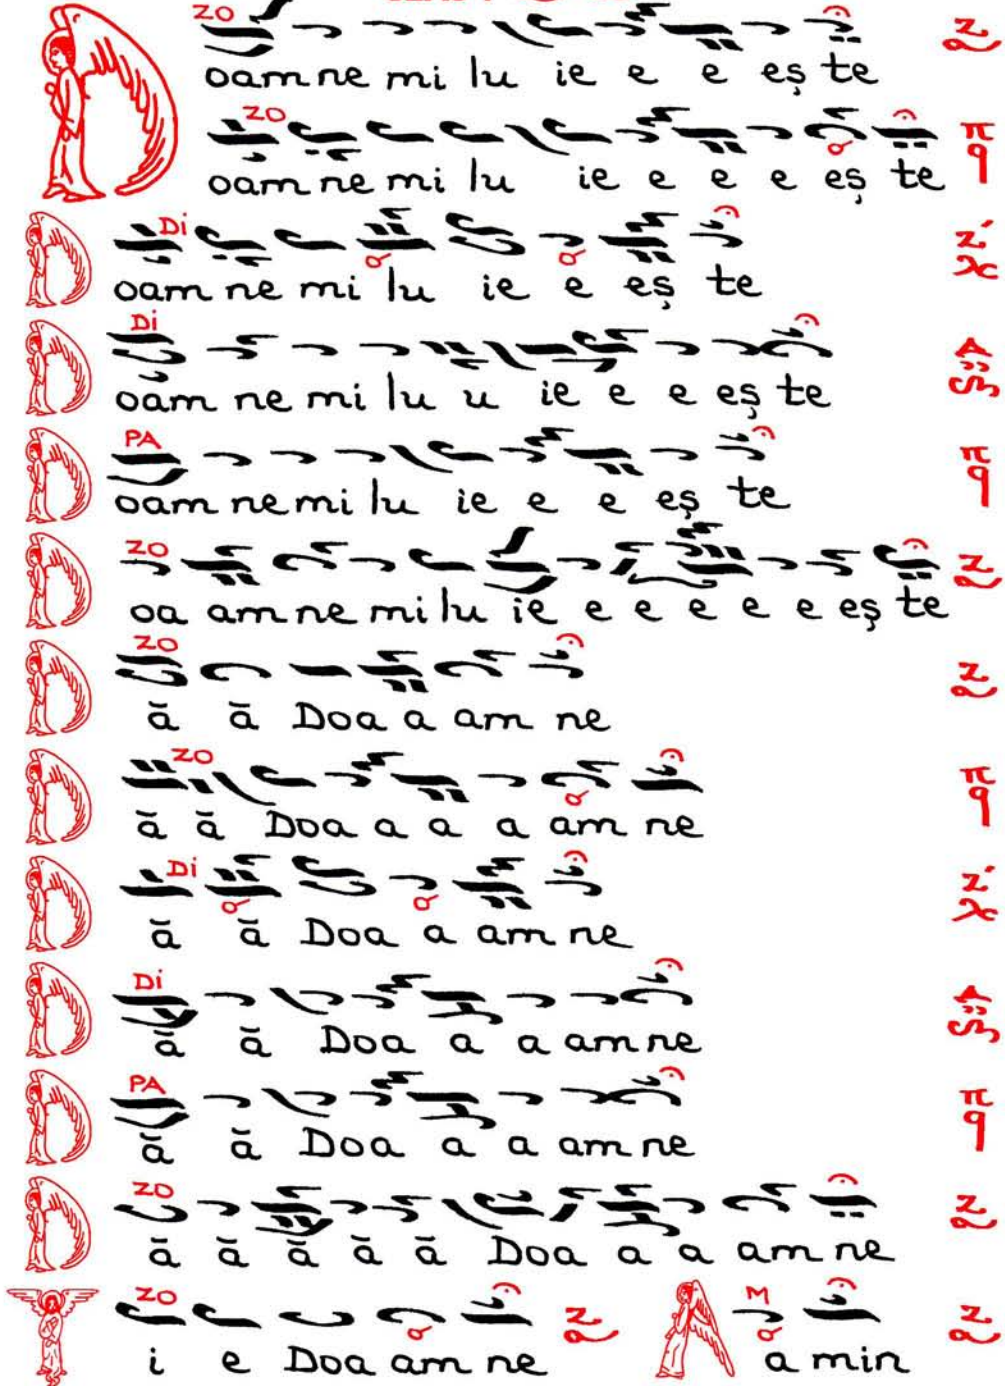 ZO
Doam ne mi lu ie e e eș te
ZO
oam ne mi lu ie e e e eș te π q
Di
Doam ne mi lu ie e eș te
Di
Doam ne mi lu u ie e e eș te
PA
Doam ne mi lu ie e e eș te π q
ZO
Doa am ne mi lu ie e e e e e eș te
ZO
D ă ă Doa a am ne
ZO
D ă ă Doa a a a am ne π q
Di
D ă ă Doa a am ne
Di
D ă ă Doa a a am ne
PA
D ă ă Doa a a am ne π q
ZO
D ă ă ă ă ă Doa a a am ne
ZO M
T i e Doa am ne A a min